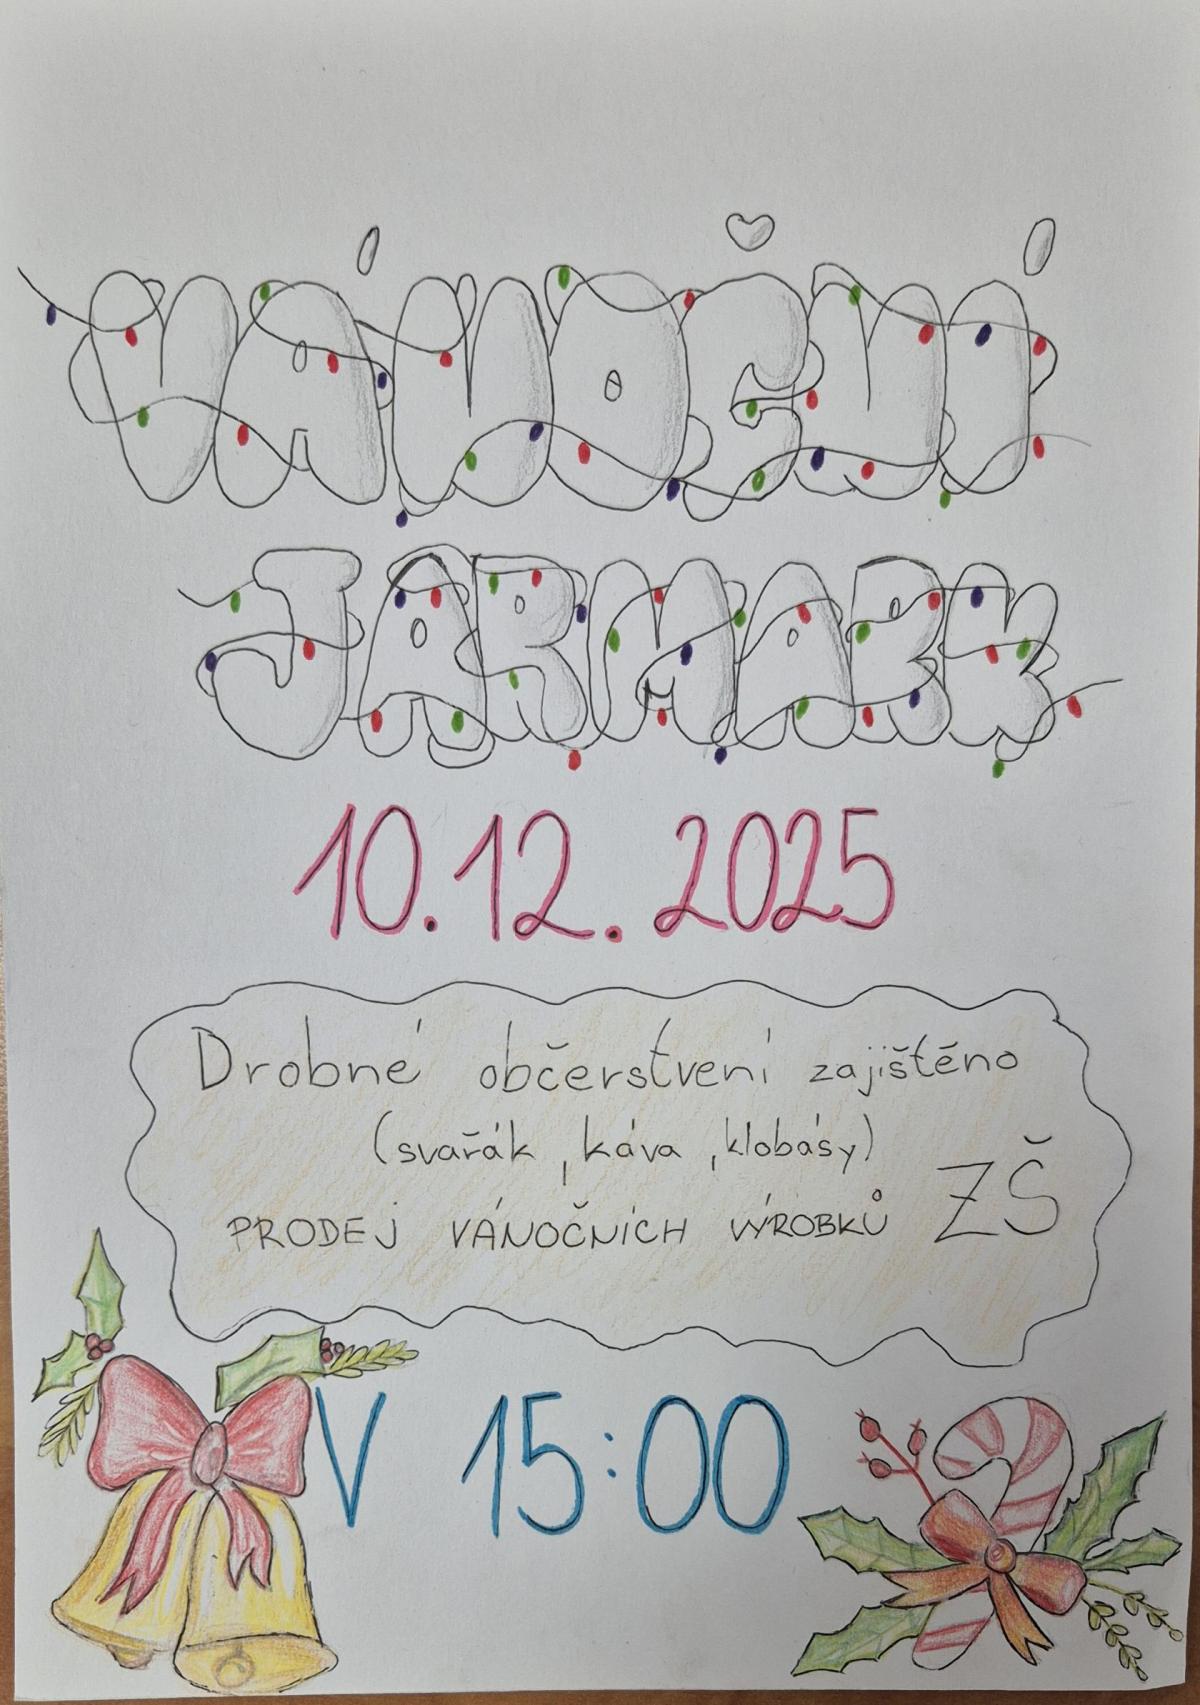 VÁNOČNÍ
JARMARK
10.12.2025
Drobné občerstvení zajištěno
(svařák, káva, klobásy)
PRODEJ VÁNOČNÍCH VÝROBKŮ ZŠ
V 15:00